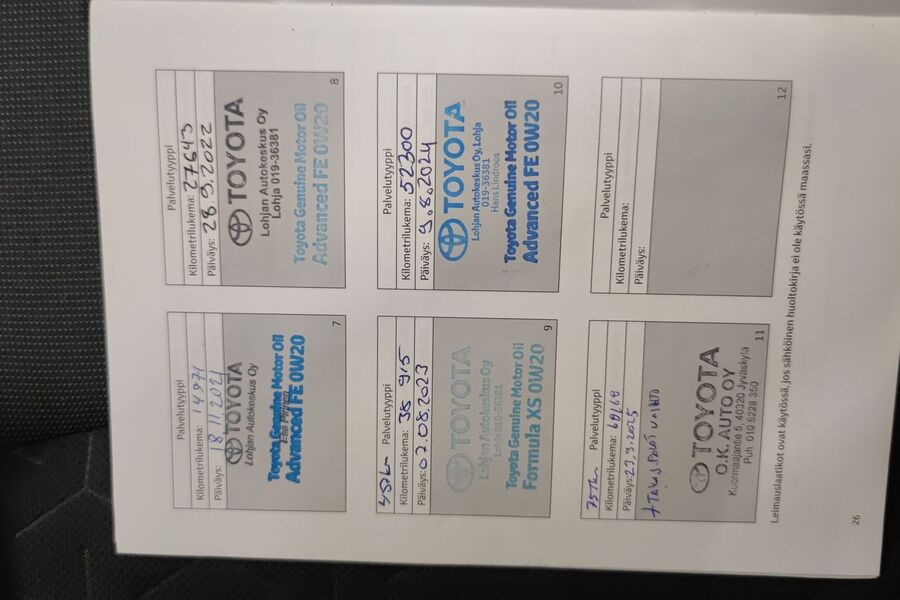 Palvelutyyppi
Kilometrilukema: 14971
Päiväys: 18.11.2021
TOYOTA
Lohjan Autokeskus Oy
Toyota Genuine Motor Oil
Advanced FE 0W20
7
Palvelutyyppi
Kilometrilukema: 27643
Päiväys: 28.9.2022
TOYOTA
Lohjan Autokeskus Oy
Lohja 019-36381
Toyota Genuine Motor Oil
Advanced FE 0W20
8
Palvelutyyppi
Kilometrilukema: 38 915
Päiväys: 07.08.2023
TOYOTA
Lohjan Autokeskus Oy
Lohja 019-36381
Toyota Genuine Motor Oil
Formula XS 0W20
9
Palvelutyyppi
Kilometrilukema: 52300
Päiväys: 9.8.2024
TOYOTA
Lohjan Autokeskus Oy, Lohja
019-36381
Hans Lindroos
Toyota Genuine Motor Oil
Advanced FE 0W20
10
Palvelutyyppi
Kilometrilukema:
Päiväys:
TOYOTA
O.K. AUTO OY
Kuormaajantie 5, 40320 Jyväskylä
Puh. 010 5228 350
11
Palvelutyyppi
Kilometrilukema:
Päiväys:
12
Leimauslaatikot ovat käytössä, jos sähköinen huoltokirja ei ole käytössä maassasi.
26